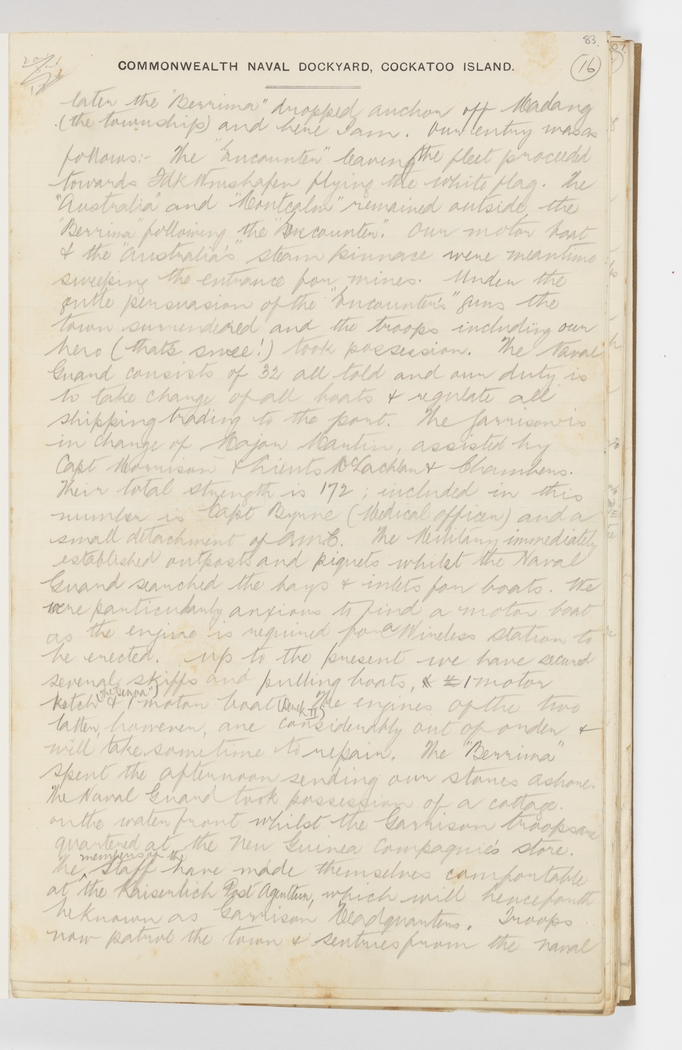 83.
16
COMMONWEALTH NAVAL DOCKYARD, COCKATOO ISLAND.
later the "Berrima" dropped anchor off Madang
(the township) and here I am. Our entry was as
follows:- The "Encounter" leaving the fleet proceeded
towards Fdk Wmshafen flying the white flag. The
"Australia" and "Montcalm" remained outside, the
"Berrima" following the "Encounter". Our motor boat
& the "Australia's" steam pinnace were meantime
sweeping the entrance for mines. Under the
gentle persuasion of the "Encounter's" guns the
town surrendered and the troops including our
hero (that's smee!) took possession. The Naval
Guard consists of 32 all told and our duty is
to take charge of all boats & regulate all
shipping trading to the port. The Garrison is
in charge of Major Martin, assisted by
Capt Morrison & Lieuts McLachlan & Chambers.
Their total strength is 172; included in this
number is Capt Byrne (Medical officer) and a
small detachment of A.M.C. The Military immediately
established outposts and piquets whilst the Naval
Guard searched the bays & inlets for boats. We
were particularly anxious to find a motor boat
as the engine is required for a Wireless station to
be erected. Up to the present we have secured
several skiffs and pulling boats, & 1 motor
ketch & 1 motor boat The engines of the two
latter, however, are considerably out of order &
will take some time to repair. The "Berrima"
spent the afternoon sending our stores ashore.
The Naval Guard took possession of a cottage
on the water front whilst the Garrison troops are
quartered at the New Guinea Compagnie's store.
The members of the Staff have made themselves comfortable
at the Kaiserlich Post Agentur, which will henceforth
be known as Garrison Headquarters. Troops
now patrol the town & sentries from the naval